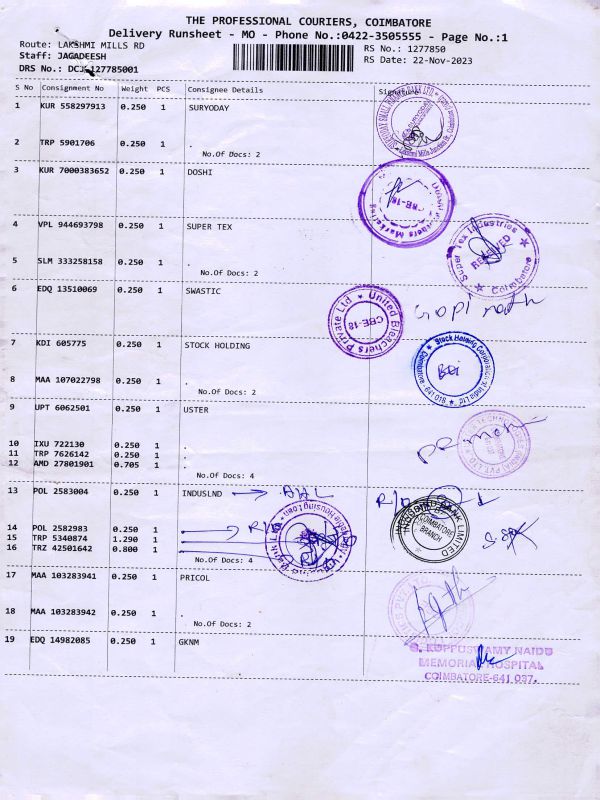 THE PROFESSIONAL COURIERS, COIMBATORE
Delivery Runsheet - MO - Phone No.:0422-3505555 - Page No.:1
Route: LAKSHMI MILLS RD
RS No.: 1277850
Staff: JAGADEESH
RS Date: 22-Nov-2023
DRS No.: 127785001
S No Consignment No Weight PCS Consignee Details Signature
1 KUR 558297913 0.250 1 SURYODAY
2 TRP 5901706 0.250 1 .
No.Of Docs: 2
3 KUR 7000383652 0.250 1 DOSHI
4 VPL 944693798 0.250 1 SUPER TEX
Super Tex Industries
RECEIVED
Coimbatore
5 SLM 333258158 0.250 1 .
No.Of Docs: 2
6 EDQ 13510069 0.250 1 SWASTIC
United Bleachers Private Ltd
CBE-18
Gopi nath
7 KDI 605775 0.250 1 STOCK HOLDING
8 MAA 107022798 0.250 1 .
No.Of Docs: 2
9 UPT 6062501 0.250 1 USTER
10 IXU 722130 0.250 1 .
11 TRP 7626142 0.250 1 .
12 AMD 27801901 0.705 1 .
No.Of Docs: 4
13 POL 2583004 0.250 1 INDUSLND
INDUSIND BANK LIMITED
COIMBATORE
BRANCH
14 POL 2582983 0.250 1
15 TRP 5340874 1.290 1
16 TRZ 42501642 0.800 1
No.Of Docs: 4
17 MAA 103283941 0.250 1 PRICOL
18 MAA 103283942 0.250 1 .
No.Of Docs: 2
19 EDQ 14982085 0.250 1 GKNM
G. KUPPUSWAMY NAIDU
MEMORIAL HOSPITAL
COIMBATORE-641 037.